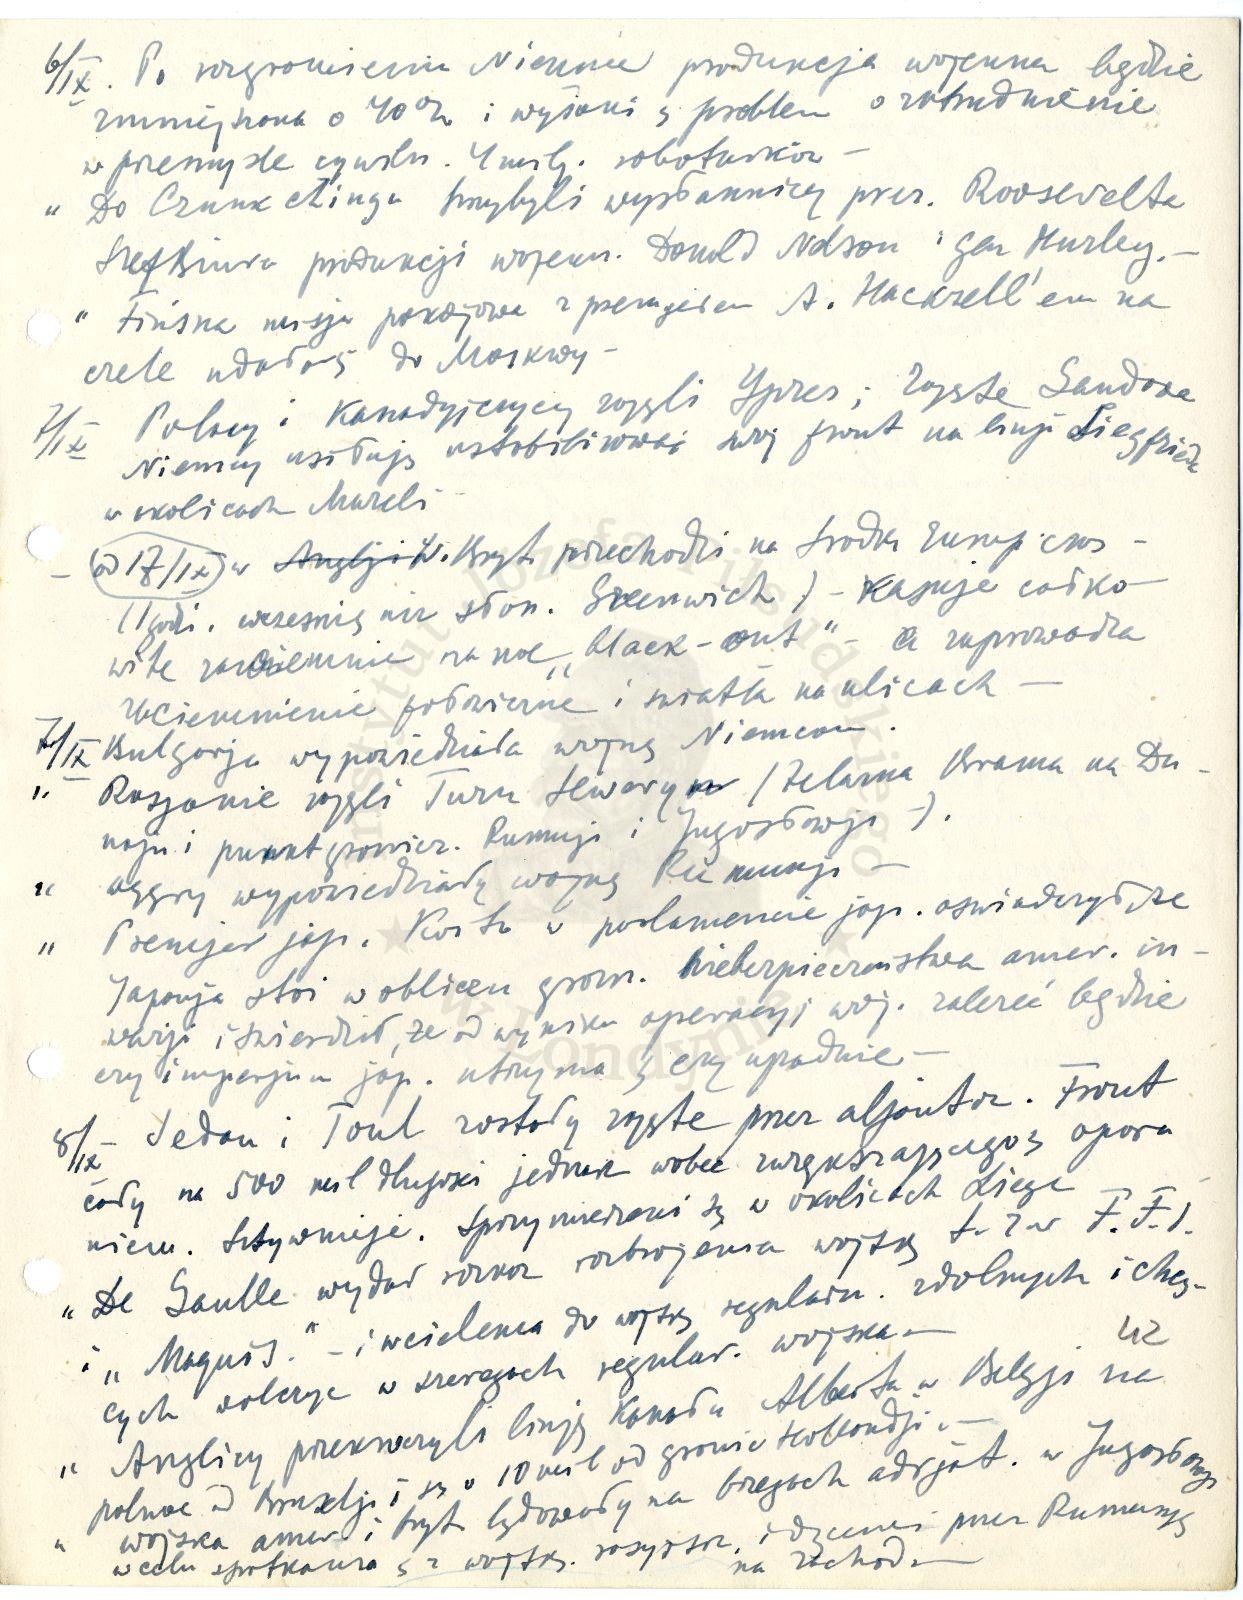 6/IX. Po rozgromieniu Niemiec produkcja wojenna będzie
zmniejszona o 40% i wyłoni ę problem o zatrudnienie
w przemyśle cywiln. 4 milj. robotników —
" Do Czunkchinga przybyli wysłannicy prez. Roosevelta
Szef Biura produkcji wojenn. Donald Nelson i gen Hurley. —
" Fińska misja pokojowa z premjerem A. Hackzell'em na
czele udała ę do Moskwy —
7/IX Polacy i Kanadyjczycy zajęli Ypres; zajęte
Niemcy usiłują ustabilizować swój front na linji Siegfrieda
w okolicach Mozeli —
— (od 17/IX) w Anglji W. Bryt. przechodzi na środk. europ. czas —
(1 godz. wcześniej niż słon. Greenwich) — kasuje całko-
wite zaciemnienie na noc „black-out" — a zaprowadza
zaciemnienie połowiczne i światła na ulicach —
7/IX Bulgarja wypowiedziała wojnę Niemcom.
" Rosjanie zajęli Turnu Severin (Żelazna Brama na Du-
naju i punkt granicz. Rumunji i Jugosławji —).
" Węgry wypowiedziały wojnę Rumunji —
" Premjer jap. Koiso w parlamencie jap. oświadczył, że
Japonja stoi w obliczu groźn. niebezpieczeństwa amer. in-
wazji i stwierdził, że od wyniku operacyj woj. zależeć będzie
czy imperjum jap. utrzyma ę czy upadnie —
8/IX — Sedan i Toul zostały zajęte przez aljantów. Front
cały na 500 mil długości jednak wobec zwiększającego ę oporu
niem. sztywnieje. Sprzymierzeni są w okolicach Liege
" De Gaulle wydał rozkaz rozbrojenia wojsk t. zw F.F.I.
i „Maquis." — i wcielenia do wojsk regularn. zdolnych i chcą-
cych walczyć w szeregach regular. wojska —
42
" Anglicy przekroczyli linję Kanału Alberta w Belgji na
północ od Brukselji i są o 10 mil od granic Hollandji. —
" wojska amer. i bryt. lądowały na brzegach adrjat. w Jugosławji
w celu spotkania ę z wojsk. rosyjsk. idącemi przez Rumunję
na zachod. —
Instytut Józefa Piłsudskiego
w Londynie